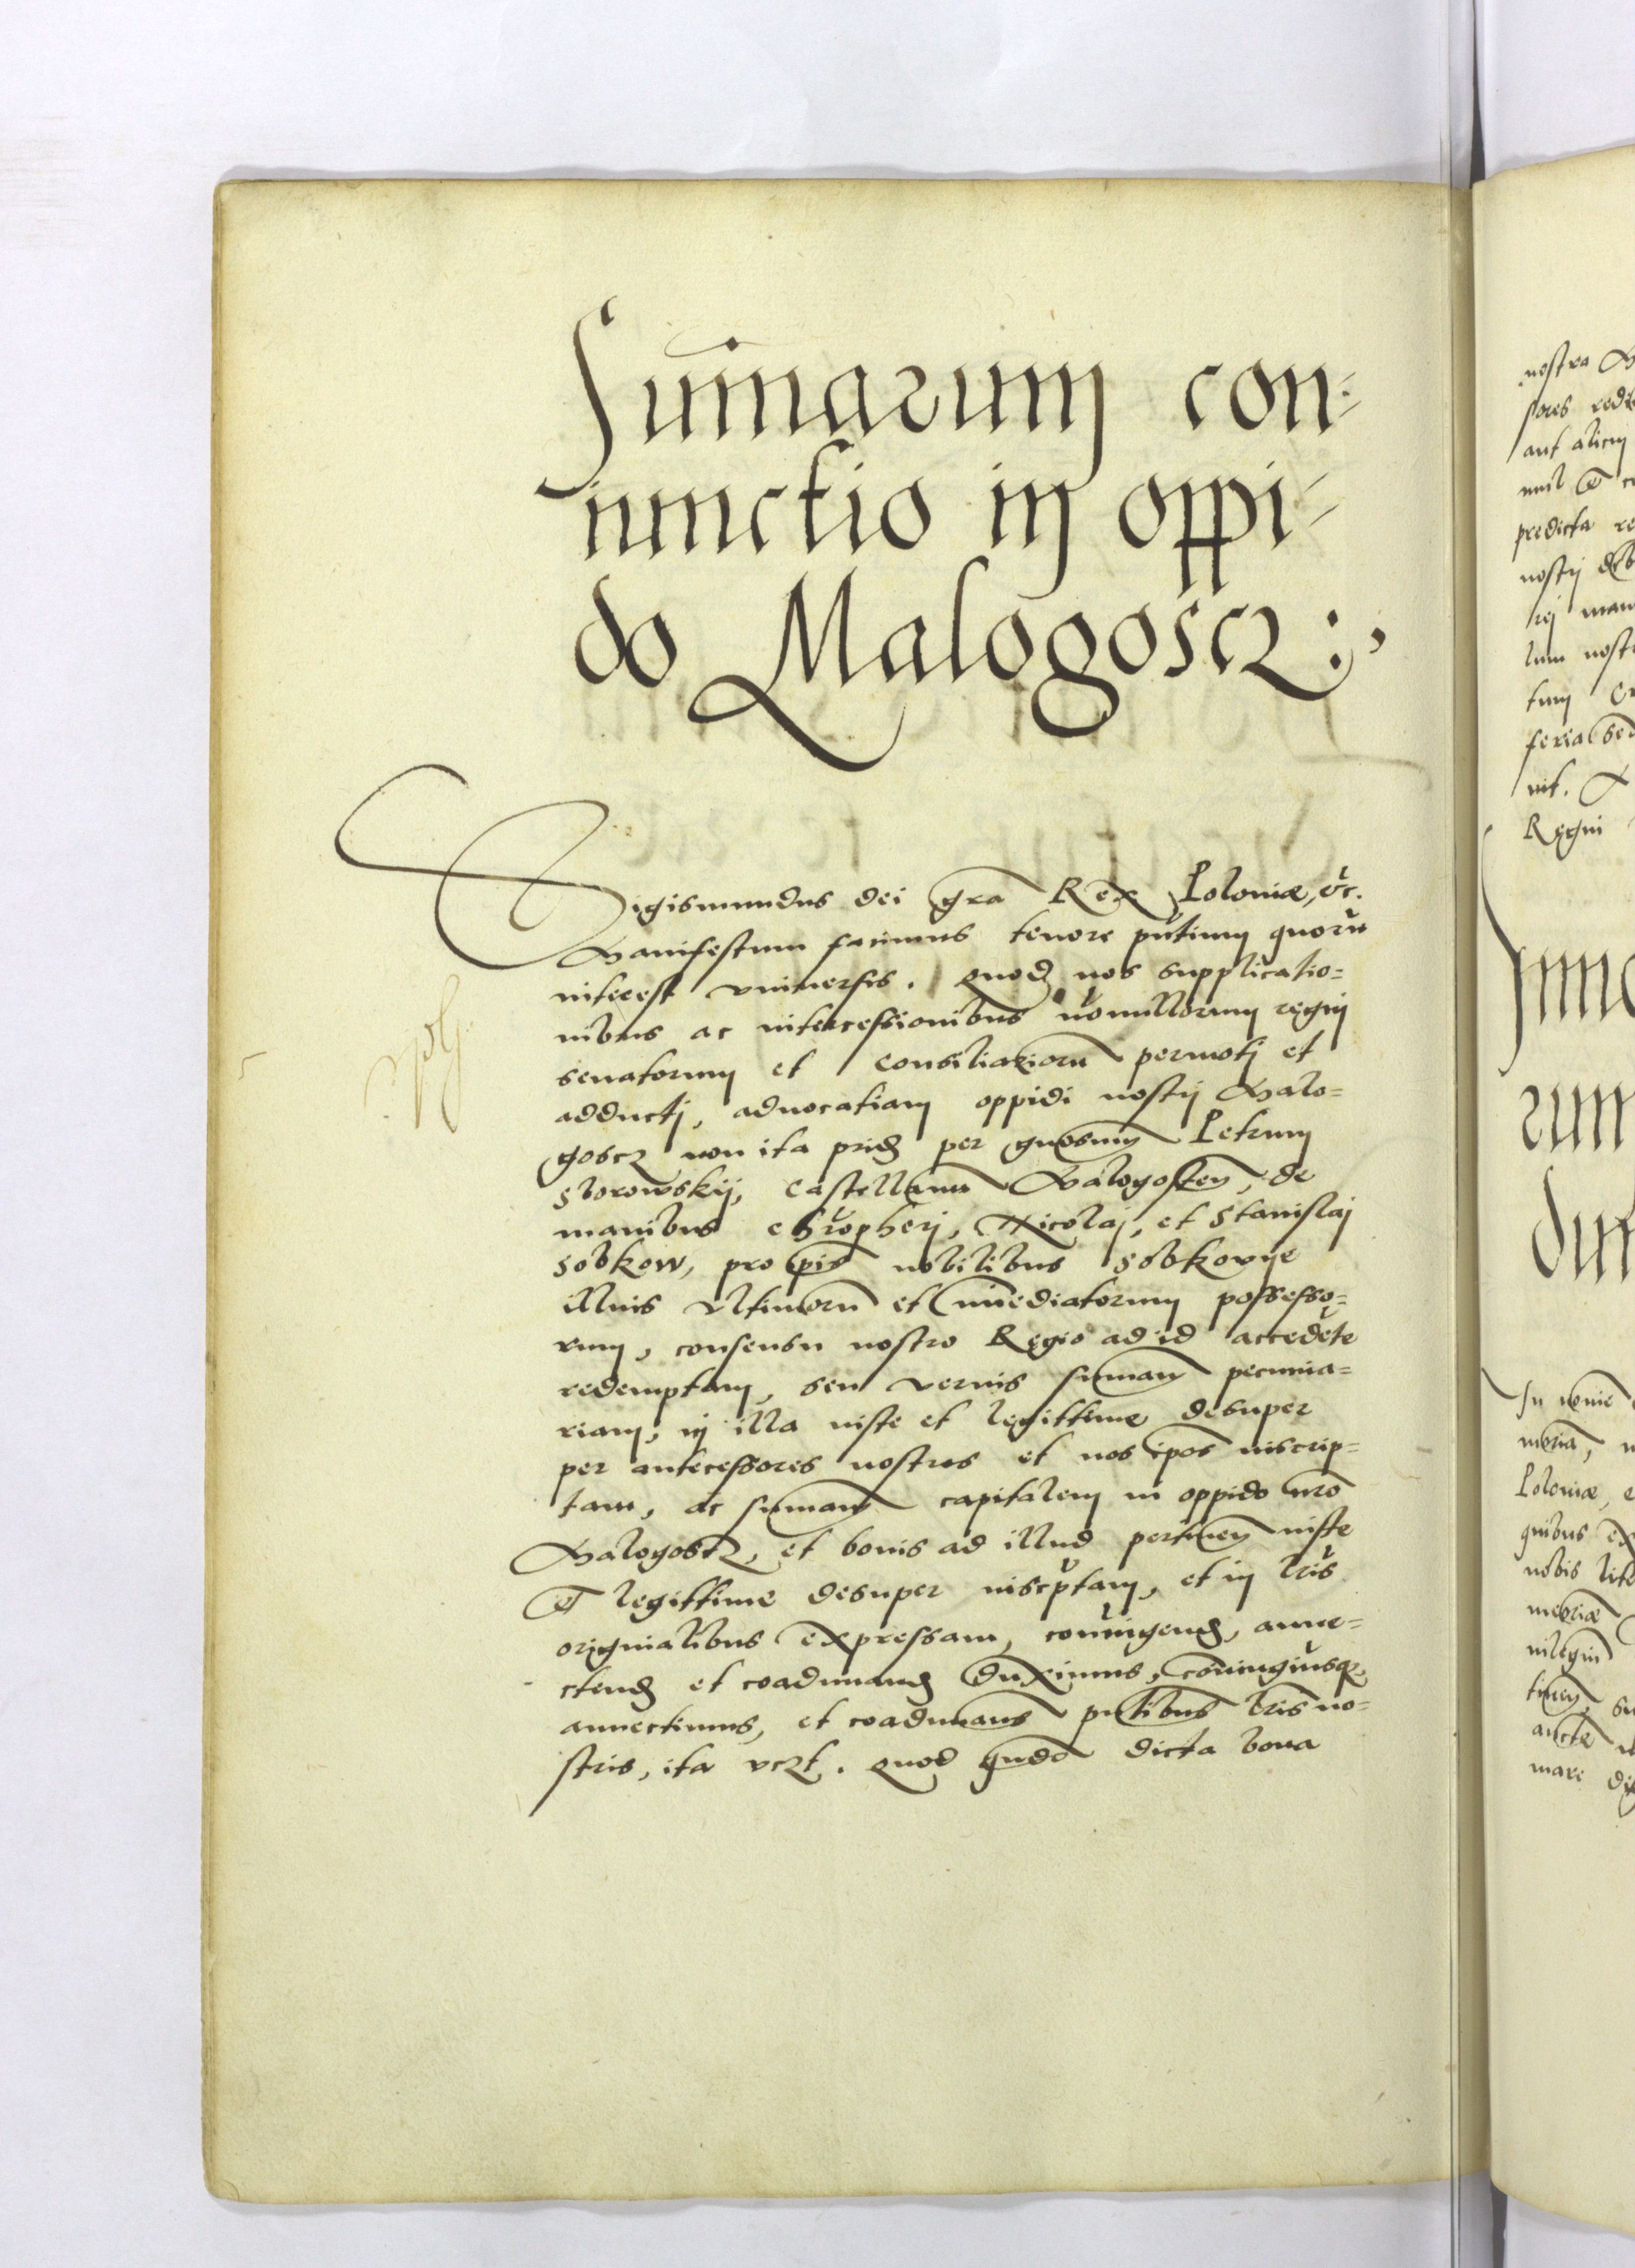 Sum̄arum con-
iunctio in oppi-
do Malogoscz:,
Sigismundus dei gra Rex Poloniæ, &c.
Manifestum facimus tenore pn̄tium quorū
interest vniuersis. Quod nos supplicatio=
nibus ac intercessionibus nōnullorum regni
senatorum et Consiliariorū permoti et
adducti, aduocatiam oppidi nostri Malo=
goscz non ita prid per gnosum Petrum
Sborowskij, Castellanū Malogosten, de
manibus Chropheri, Nicolai, et Stanislai
Sobkow, pro pie nobilibus Sobkovye
illius vltimorū et im̄ediatorum possesso=
rum, consensu nostro Regio ad id accedēte
redemptam, seu verius sum̄am pecunia=
riam, in illa iuste et legittime desuper
per antecessores nostros et nos ipos inscrip=
tam, ac sum̄am capitalem in oppido nrō
Malogoscz, et bonis ad illud pertinen iuste
et legittime desuper inscptam, et in lris
originalibus expressam, coniungend, anne=
ctend et coadunand duximus, coniungimusq
annectimus, et coadunams pn̄tibus lris no=
stris, ita vczt. Quod qndo dicta bona
nostra
redi
aut alicui
predicta re
nostri
lum nost
tum
feria
nit.
Regni
rum
In
Poloniæ,
quibus ex
nobis lite
mare